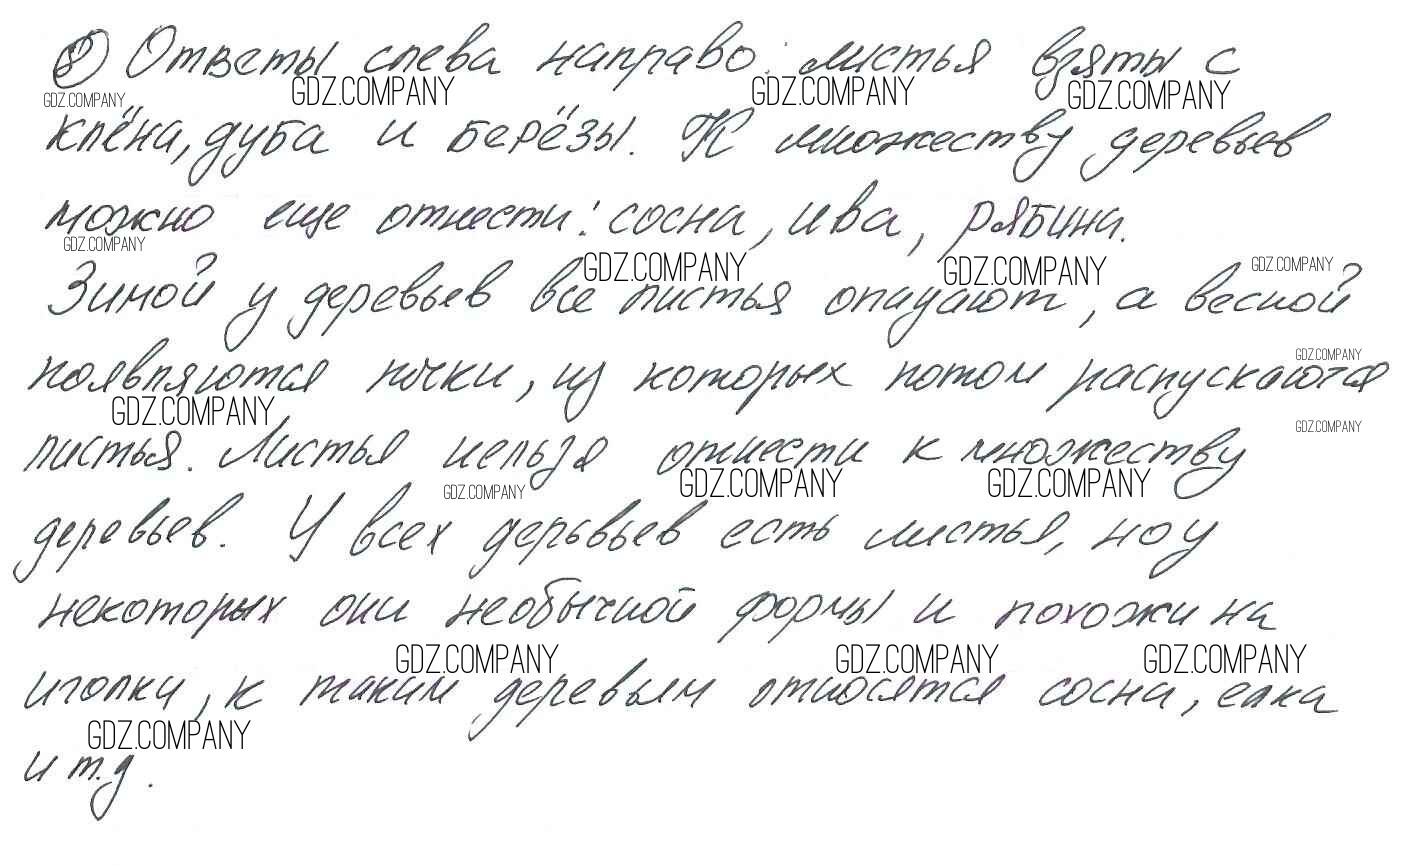 8) Ответы слева направо: листья взяты с
GDZ.COMPANY GDZ.COMPANY GDZ.COMPANY GDZ.COMPANY
клёна, дуба и берёзы. К множеству деревьев
можно еще отнести: сосна, ива, рябина.
GDZ.COMPANY GDZ.COMPANY GDZ.COMPANY GDZ.COMPANY
Зимой у деревьев все листья опадают, а весной
появляются почки, из которых потом распускаются
GDZ.COMPANY GDZ.COMPANY
листья. Листья нельзя отнести к множеству
GDZ.COMPANY GDZ.COMPANY GDZ.COMPANY GDZ.COMPANY
деревьев. У всех деревьев есть листья, но у
некоторых они необычной формы и похожи на
GDZ.COMPANY GDZ.COMPANY GDZ.COMPANY
иголки, к таким деревьям относятся сосна, елка
GDZ.COMPANY
и т.д.